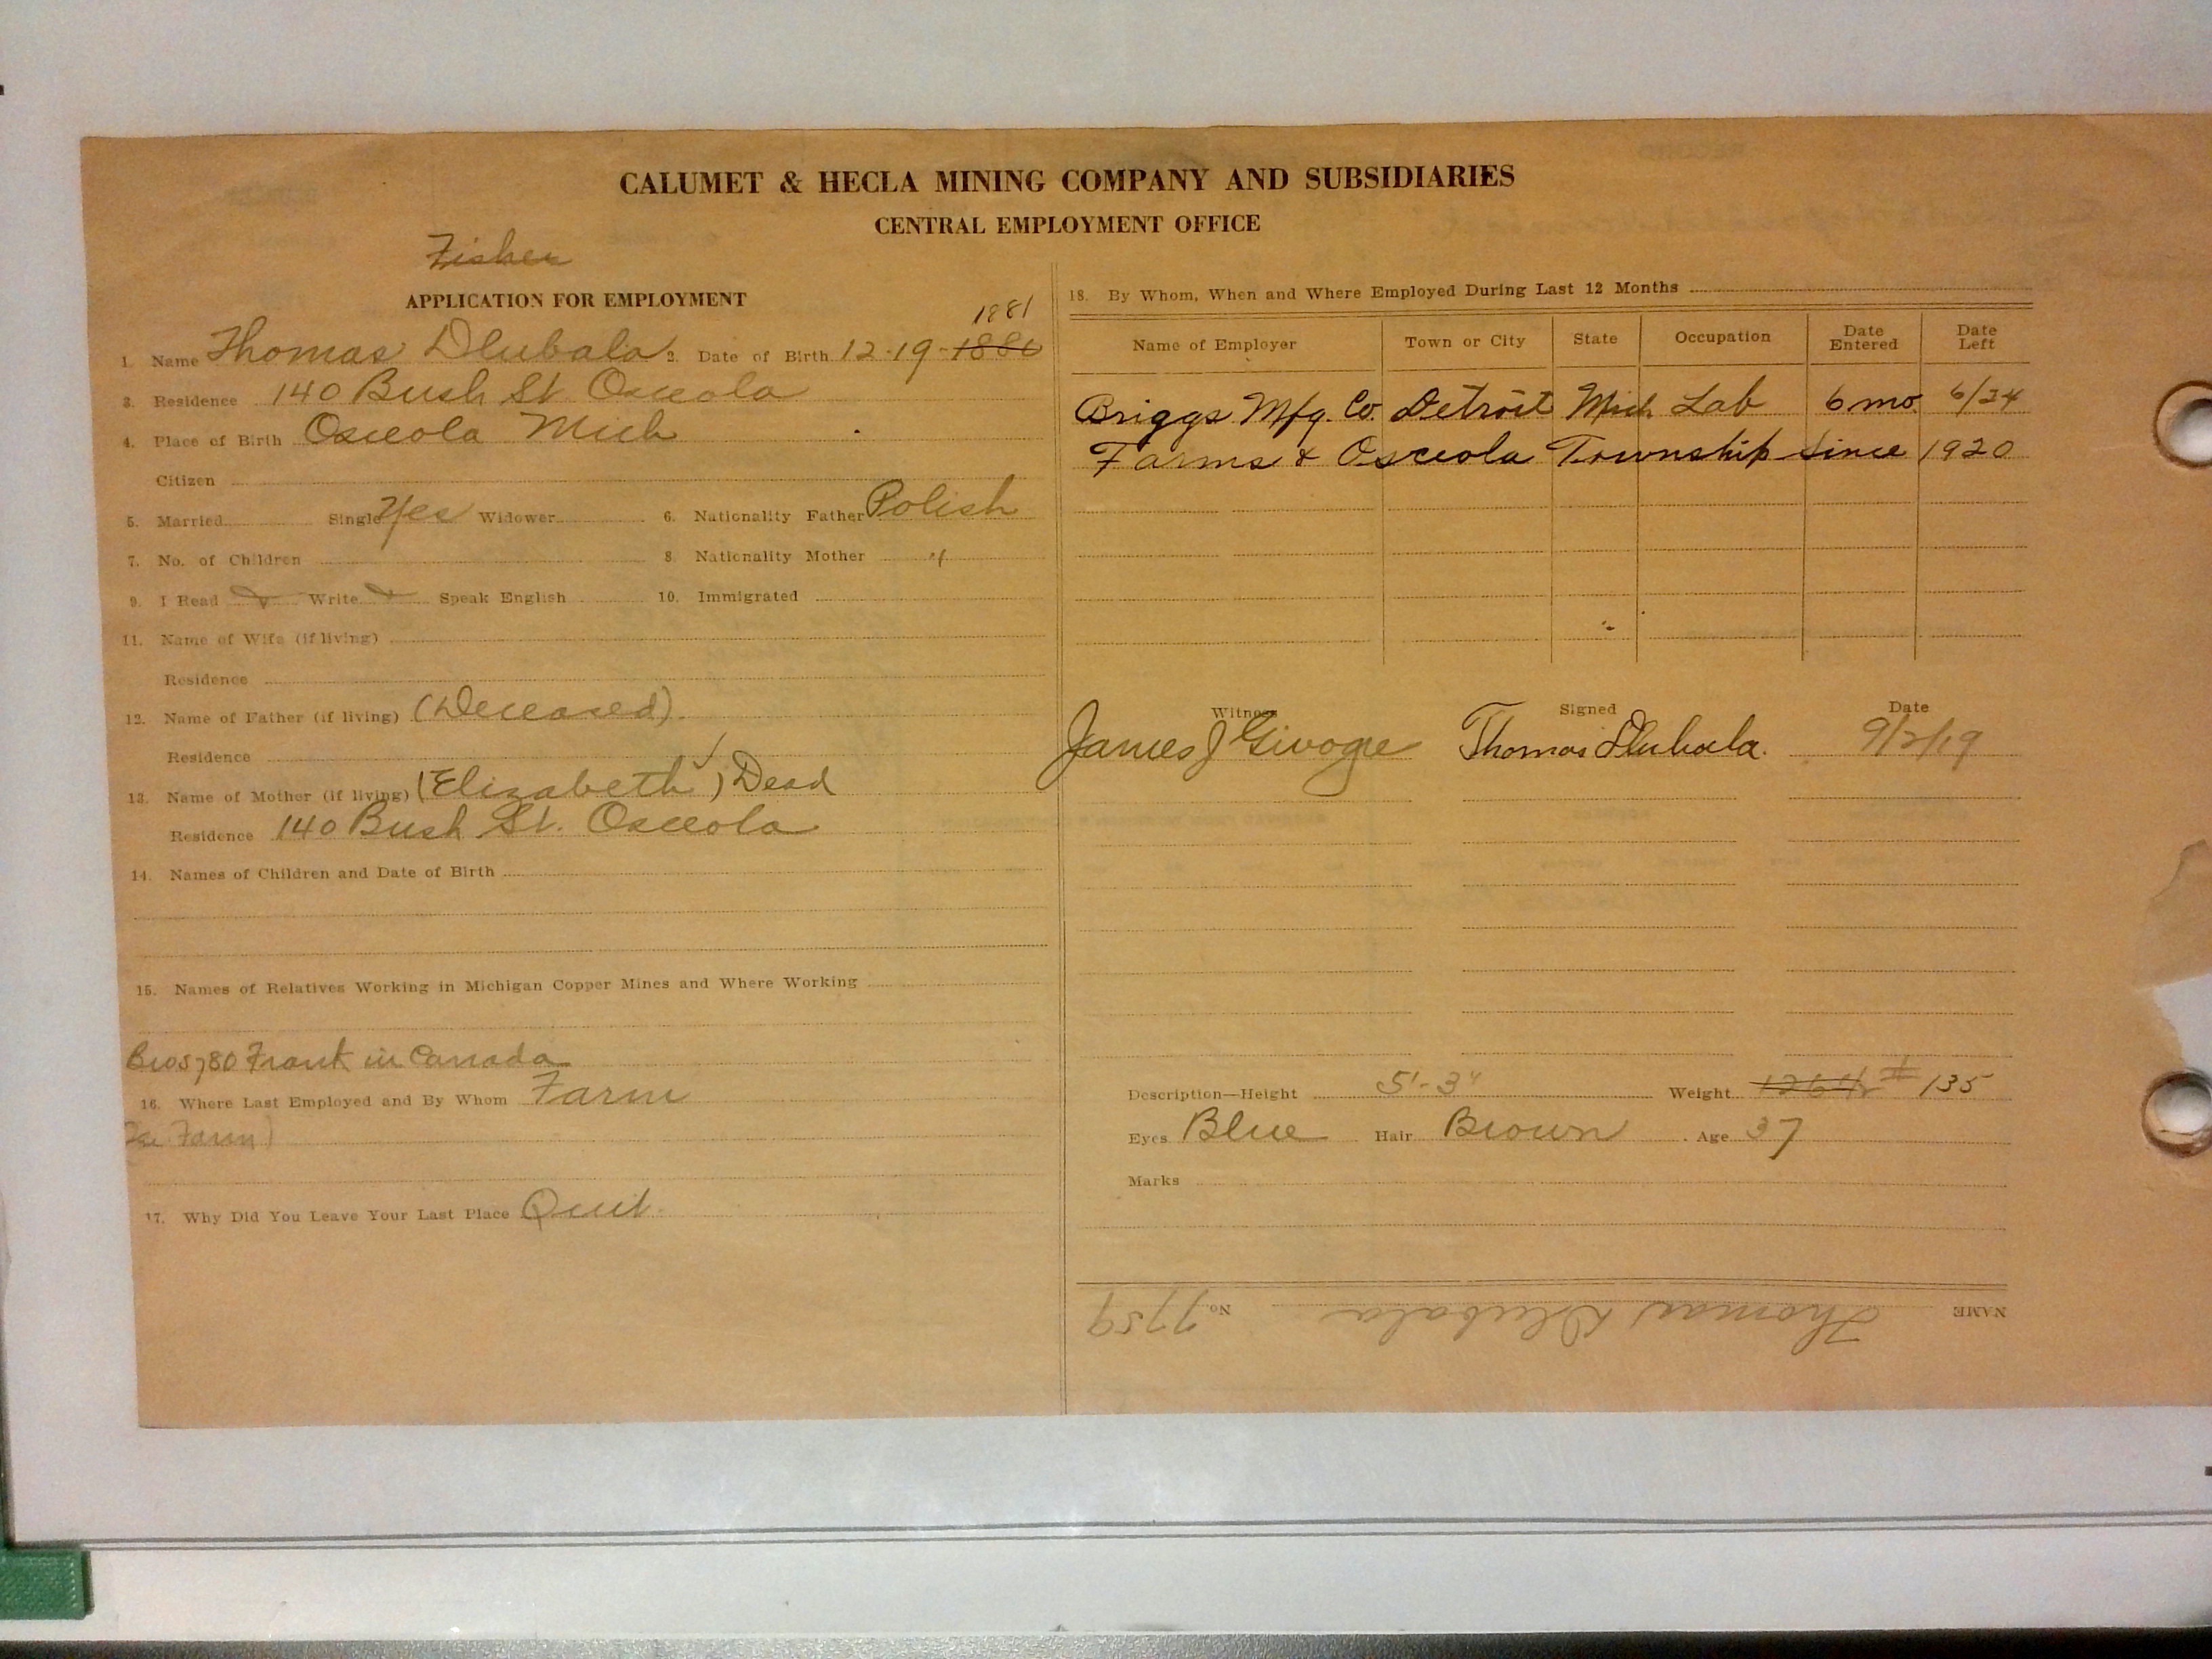 CALUMET & HECLA MINING COMPANY AND SUBSIDIARIES
CENTRAL EMPLOYMENT OFFICE
Fisher
APPLICATION FOR EMPLOYMENT
1881
1. Name Thomas Dlubala 2. Date of Birth 12-19-1880
3. Residence 140 Bush St Osceola
4. Place of Birth Osceola Mich
Citizen
5. Married Single Yes Widower 6. Nationality Father Polish
7. No. of Children 8. Nationality Mother "
9. I Read Write Speak English 10. Immigrated
11. Name of Wife (if living)
Residence
12. Name of Father (if living) (Deceased).
Residence
13. Name of Mother (if living) (Elizabeth) Dead
Residence 140 Bush St. Osceola
14. Names of Children and Date of Birth
15. Names of Relatives Working in Michigan Copper Mines and Where Working
Frank in Canada
16. Where Last Employed and By Whom Farm
Farm)
17. Why Did You Leave Your Last Place Quit.
18. By Whom, When and Where Employed During Last 12 Months
Name of Employer Town or City State Occupation Date Entered Date Left
Briggs Mfg. Co. Detroit Mich. Lab 6 mo. 6/24
Farms & Osceola Township since 1920
Witness Signed Date
James J Givogre Thomas Dlubala. 9/2/19
Description—Height 5'-3" Weight 126 1/2 # 135
Eyes Blue Hair Brown Age 37
Marks
NAME Thomas Dlubala No. 7759